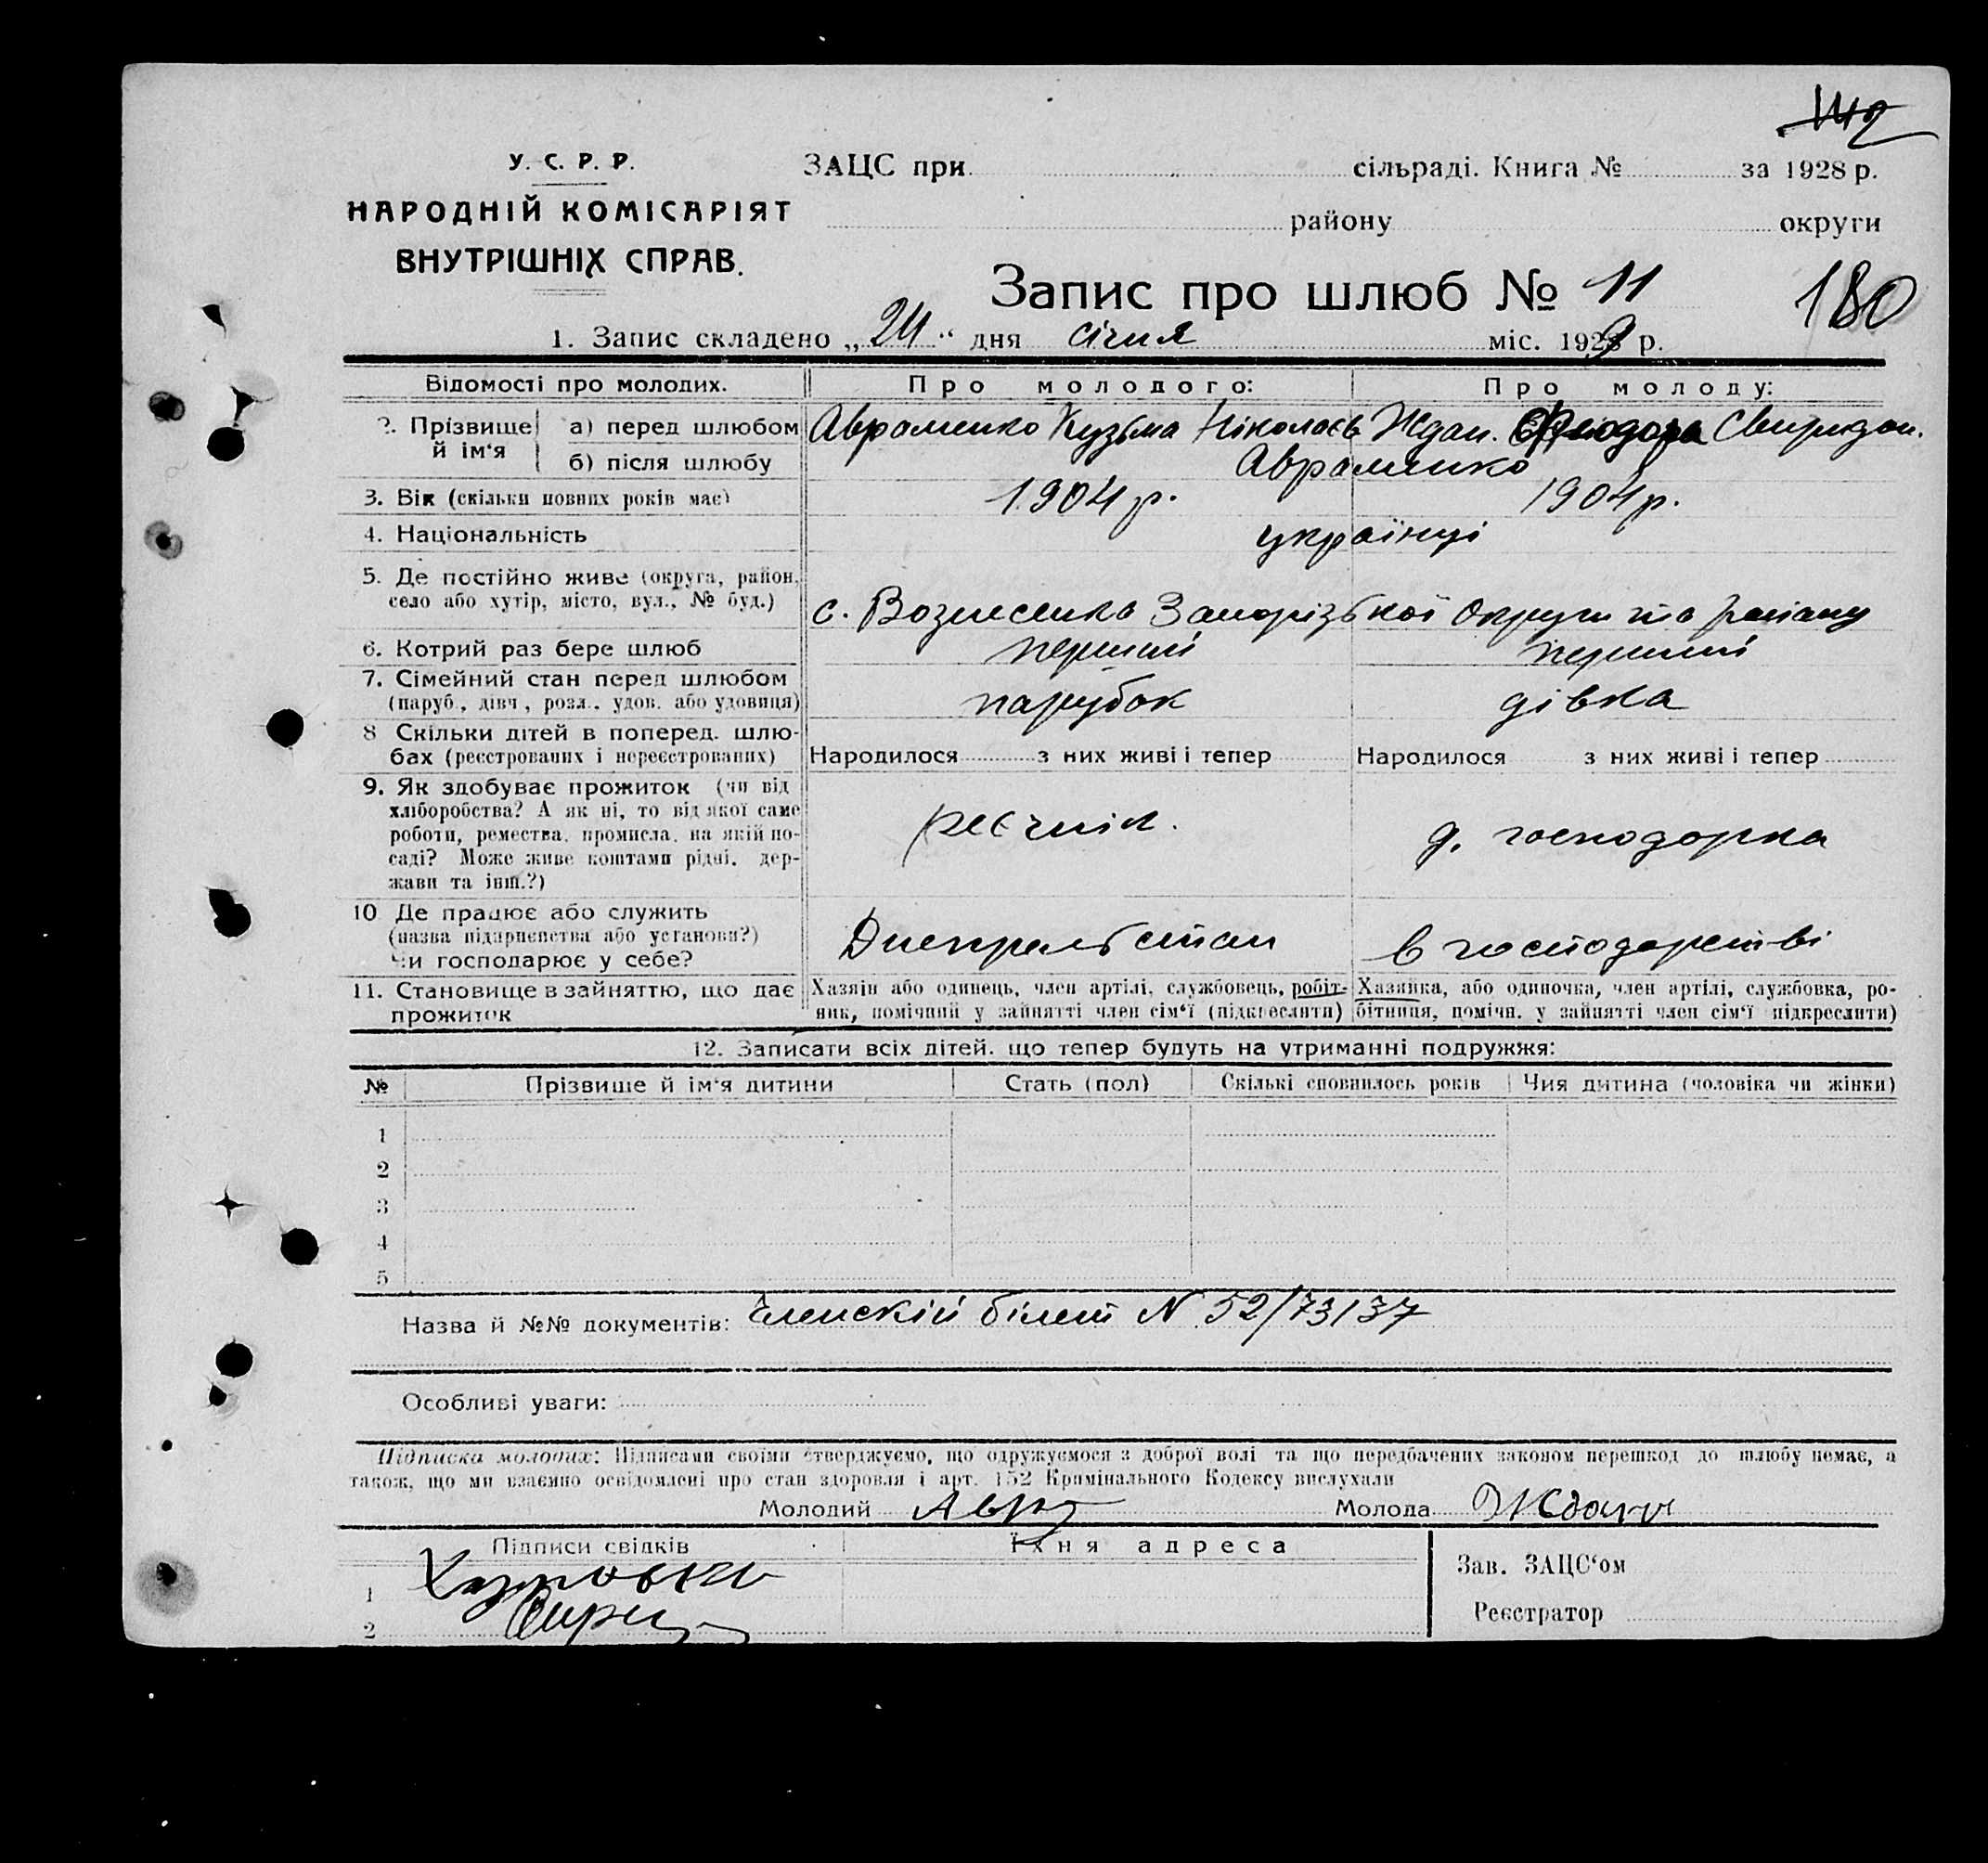 142
У. С. Р. Р.
НАРОДНІЙ КОМІСАРІЯТ
ВНУТРІШНІХ СПРАВ.
ЗАЦС при сільраді. Книга № за 1928 р.
району округи
Запис про шлюб № 11
180
1. Запис складено „24“ дня січня міс. 1929 р.
Відомості про молодих. Про молодого: Про молоду:
2. Прізвище й ім‘я а) перед шлюбом Авраменко Кузьма Ніколаєв Ждан. Феодора Свиридон.
б) після шлюбу Авраменко
3. Вік (скільки повних років має) 1904 р. 1904 р.
4. Національність українці
5. Де постійно живе (округа, район,
село або хутір, місто, вул., № буд.) с. Вознесенка Запорізької Округи та району
6. Котрий раз бере шлюб перший перший
7. Сімейний стан перед шлюбом
(паруб., дівч., розл., удов. або удовиця) парубок дівка
8 Скільки дітей в поперед. шлю-
бах (реєстрованих і нереєстрованих) Народилося з них живі і тепер Народилося з них живі і тепер
9. Як здобуває прожиток (чи від
хліборобства? А як ні, то від якої саме
роботи, ремества, промисла, на якій по-
саді? Може живе коштами рідні, дер-
жави та інш.?)
реєчнік. д. господорка
10 Де працює або служить
(назва підприємства або установи?)
Чи господарює у себе?
Днепрельстан в господарстві
11. Становище в зайняттю, що дає
прожиток
Хазяїн або одинець, член артілі, службовець, робіт-
ник, помічний у зайнятті член сім‘ї (підкреслити)
Хазяйка, або одиночка, член артілі, службовка, ро-
бітниця, помічн. у зайнятті член сім‘ї підкреслити)
12. Записати всіх дітей. що тепер будуть на утриманні подружжя:
№ Прізвище й ім‘я дитини Стать (пол) Скількі сповнилось років Чия дитина (чоловіка чи жінки)
1
2
3
4
5
Назва й №№ документів: Членскій білет N 52/73137
Особливі уваги:
Підписка молодих: Підписами своїми стверджуємо, що одружуємося з доброї волі та що передбачених законом перешкод до шлюбу немає, а
також, що ми взаємно освідомлені про стан здоровля і арт. 152 Кримінального Кодексу вислухали
Молодий Авр Молода Ждан
Підписи свідків Їхня адреса
1
2
Зав. ЗАЦС‘ом
Реєстратор